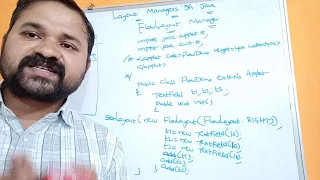 Layout Managers In Java
FlowLayout Manager
import java.applet.*;
import java.awt.*;
/* <applet code=FlowDemo height=
</applet>
*/
public class FlowDemo extends Applet
{ TextField t1, t2, t3;
public void init()
setLayout(new FlowLayout(FlowLayout.RIGHT));
t1=new TextField(10);
t2=new TextField(10);
t3=new TextField(10);
add(t1);
add(t2);
add(t3);